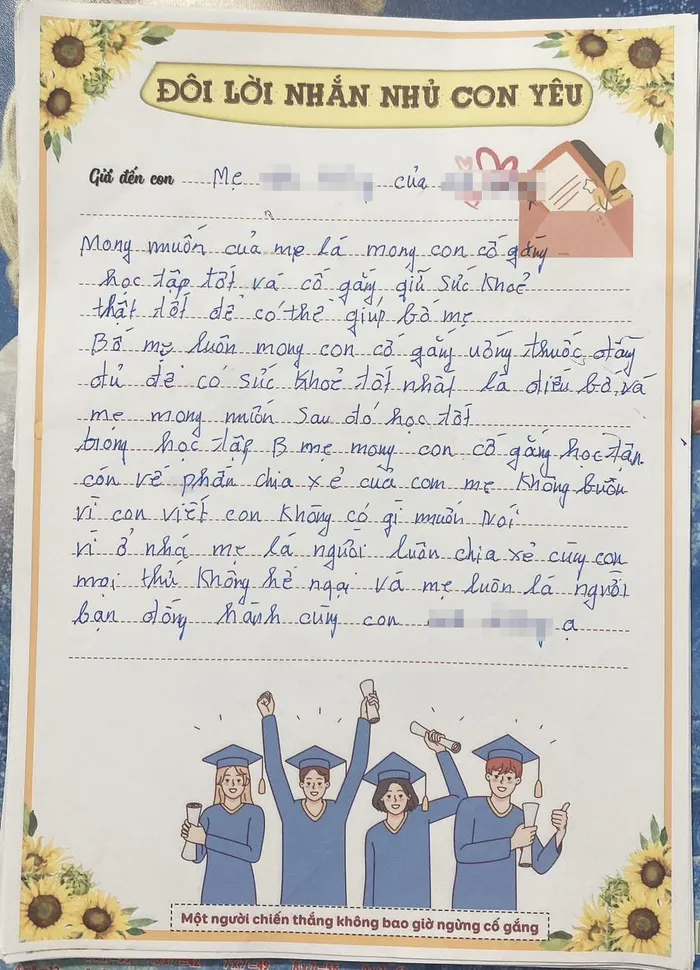 ĐÔI LỜI NHẮN NHỦ CON YÊU
Gửi đến con Mẹ của
Mong muốn của mẹ lá mong con cố gắng
học tập tốt vá cố gắng giữ sức khoẻ
thật tốt để có thể giúp bố mẹ
Bố mẹ luôn mong con cố gắng uống thuốc đầy
đủ để có sức khoẻ tốt nhất lá điều bố vá
mẹ mong muốn sau đó học tốt
trong học tập B mẹ mong con cố gắng học tập
cón về phần chia xẻ của con mẹ không buồn
vì con viết con không có gì muốn nói
vì ở nhá mẹ lá người luôn chia xẻ cùng con
mọi thứ không hề ngại vá mẹ luôn lá người
bạn đồng hánh cùng con ạ
Một người chiến thắng không bao giờ ngừng cố gắng